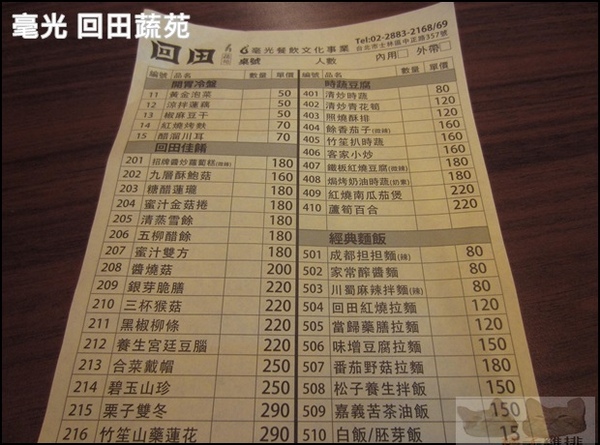 毫光 回田蔬苑
回田 毫光餐飲文化事業 Tel:02-2883-2168/69
台北市士林區中正路357號
桌號 人數 內用 外帶
編號 品名 數量 單價
開胃冷盤
11 黃金泡菜 50
12 涼拌蓮藕 50
13 椒麻豆干 50
14 紅燒烤麩 70
15 醋溜川耳 70
回田佳餚
201 招牌醬炒蘿蔔糕(微辣) 180
202 九層酥鮑菇 160
203 糖醋蓮瓏 180
204 蜜汁金菇捲 180
205 清蒸雪餘 180
206 五柳醋餘 180
207 蜜汁雙方 180
208 醬燒菇 200
209 銀芽脆膳 220
210 三杯猴菇 220
211 黑椒柳條 220
212 養生宮廷豆腦 220
213 合菜戴帽 250
214 碧玉山珍 250
215 栗子雙冬 290
216 竹笙山藥蓮花 290
編號 品名 數量 單價
時蔬豆腐
401 清炒時蔬 80
402 清炒青花筍 120
403 照燒酥排 120
404 餘香茄子(微辣) 160
405 竹笙扒時蔬 160
406 客家小炒 160
407 鐵板紅燒豆腐(微辣) 180
408 焗烤奶油時蔬(奶素) 180
409 紅燒南瓜茄煲 220
410 蘆筍百合 220
經典麵飯
501 成都担担麵(辣) 80
502 家常醡醬麵 80
503 川蜀麻辣拌麵(辣) 80
504 回田紅燒拉麵 120
505 當歸藥膳拉麵 120
506 味增豆腐拉麵 150
507 番茄野菇拉麵 180
508 松子養生拌飯 150
509 嘉義苦茶油飯 150
510 白飯/胚芽飯 15